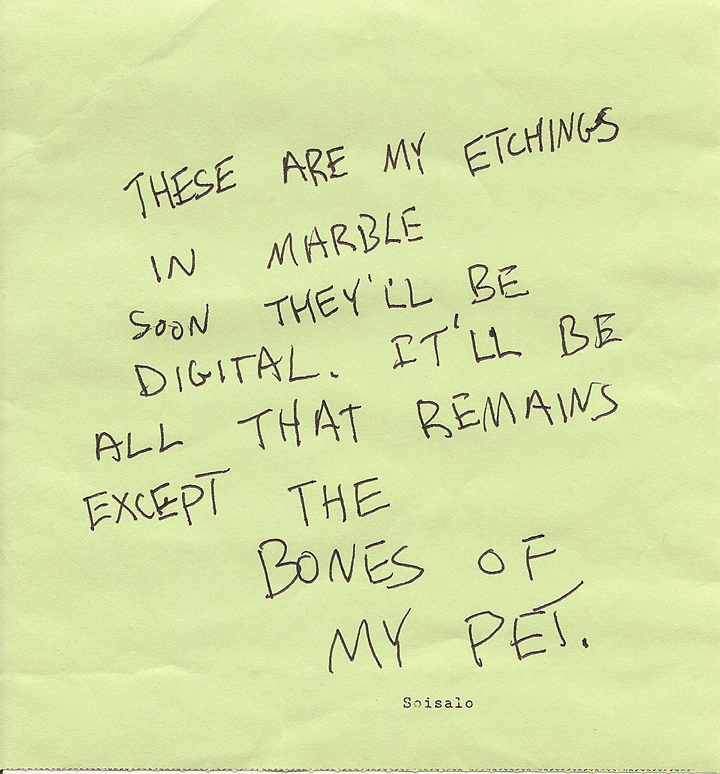 THESE ARE MY ETCHINGS
IN MARBLE
SOON THEY'LL BE
DIGITAL. IT'LL BE
ALL THAT REMAINS
EXCEPT THE
BONES OF
MY PET.
Soisalo